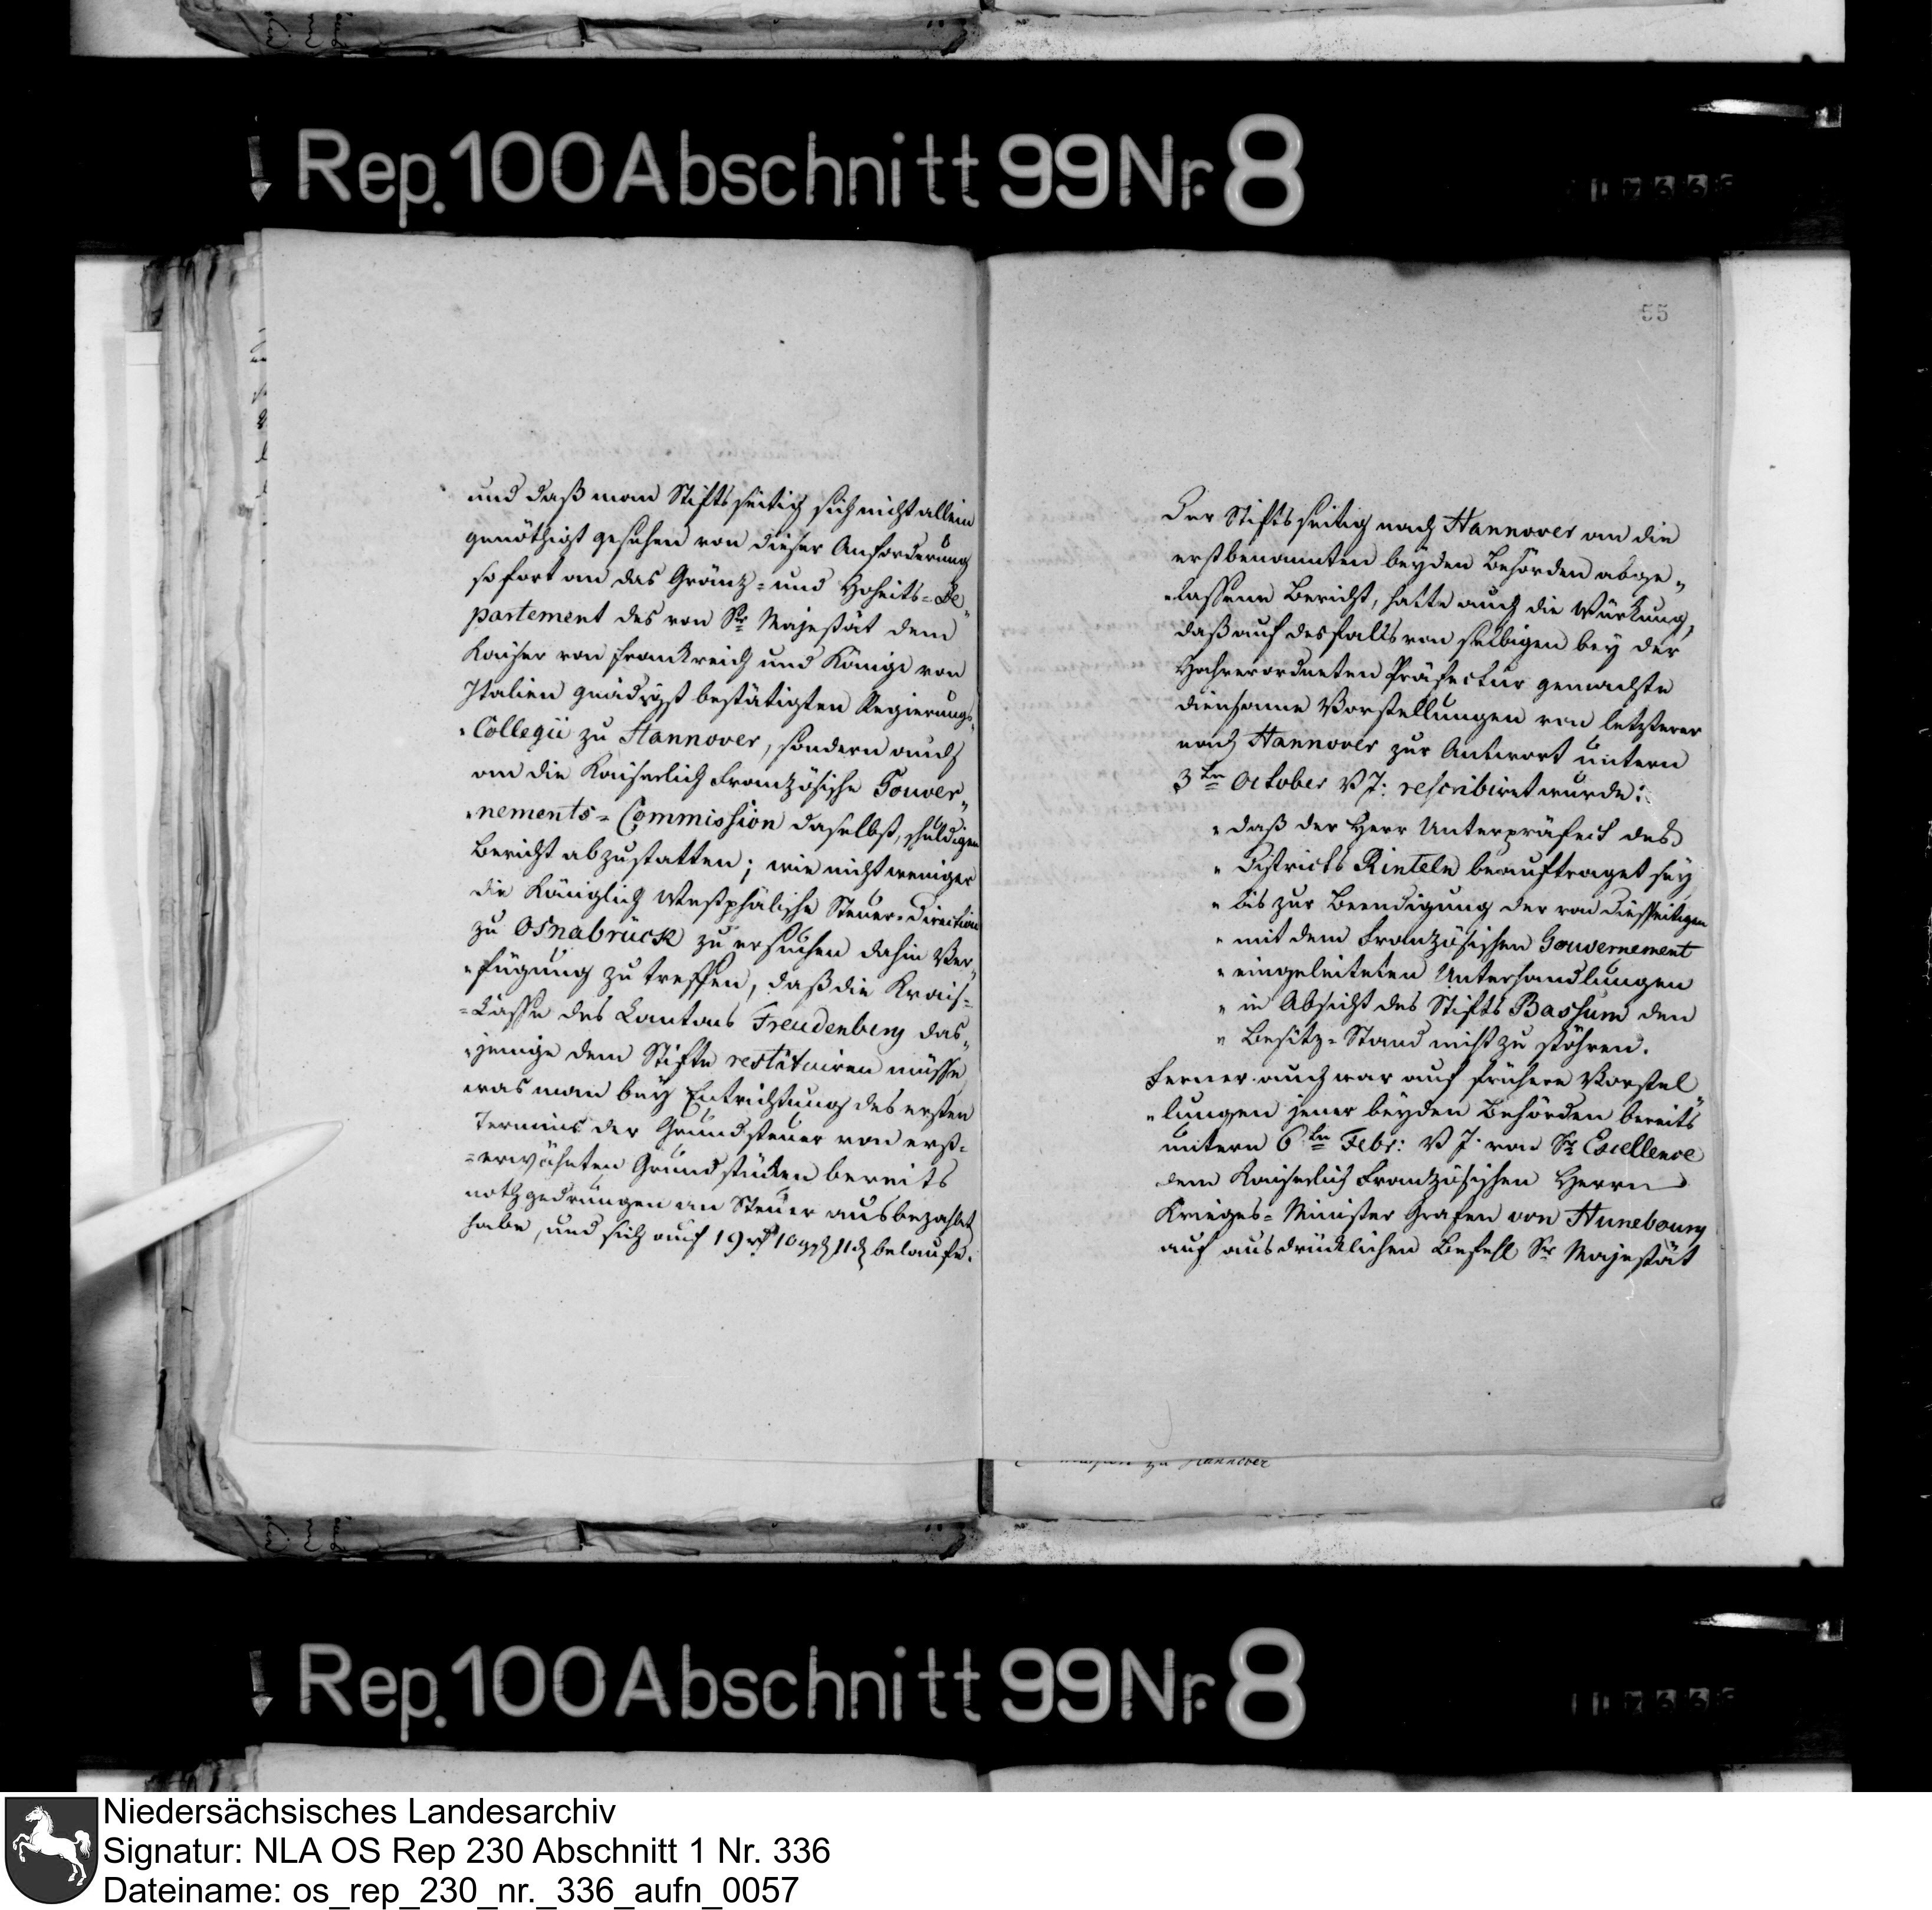 Rep. 100 Abschnitt 99 Nr. 8
und daß man Stiftsseitig sich nicht allein
genöthigt gesehen von dieser Anforderung
sofort an das Gränz- und Hoheits-De„
partement des von Sr Majestät dem
Kaiser von Frankreich und Könige von
Italien gnädigst bestätigten Regierungs„
„Collegii zu Hannover, sondern auch
an die Kaiserlich Französische Gouver„
„nements-Commission daselbst, schuldigen
Bericht abzustatten; wie nicht weniger
die Königlich Westphälische Steuer-Direction
zu Osnabrück zu ersuchen dahin Ver„
„fügung zu treffen, daß die Krais-
-Casse des Cantons Freudenberg das„
„jenige dem Stifte restituiren müsse
was man bey Entrichtung des ersten
Termins der Grundsteuer von erst-
-erwähnten Grundstücken bereits
nothgedrungen an Steuer ausbezahlt
habe, und sich auf 19 rthl 10 ggl 11 d belaufe.
55
Der Stiftsseitig nach Hannover an die
erstbenannten beyden Behörden abge„
„lassene Bericht, hatte auch die Würkung,
daß auf desfalls von selbigen bey der
Hochverordneten Präfectur gemachte
diensame Vorstellungen von letzterer
nach Hannover zur Antwort untern
3ten October V J: rescribiret wurde:
„daß der Herr Unterpräfect des
„Districts Rinteln beauftraget sey
„bis zur Beendigung der von diesseitigen
„mit dem Französischen Gouvernement
„eingeleiteten Unterhandlungen
„in Absicht des Stifts Bassum den
„Besitz-Stand nicht zu stöhren.
Ferner auch war auf frühere Vorstel„
„lungen jener beyden Behörden bereits
untern 6ten Febr: V J. von Sr Excellence
dem Kaiserlich Französischen Herrn
Krieges-Minister Grafen von Hunebourg
auf ausdrücklichen Befehl Sr Majestät
zu Hannover
Rep. 100 Abschnitt 99 Nr. 8
Niedersächsisches Landesarchiv
Signatur: NLA OS Rep 230 Abschnitt 1 Nr. 336
Dateiname: os_rep_230_nr._336_aufn_0057